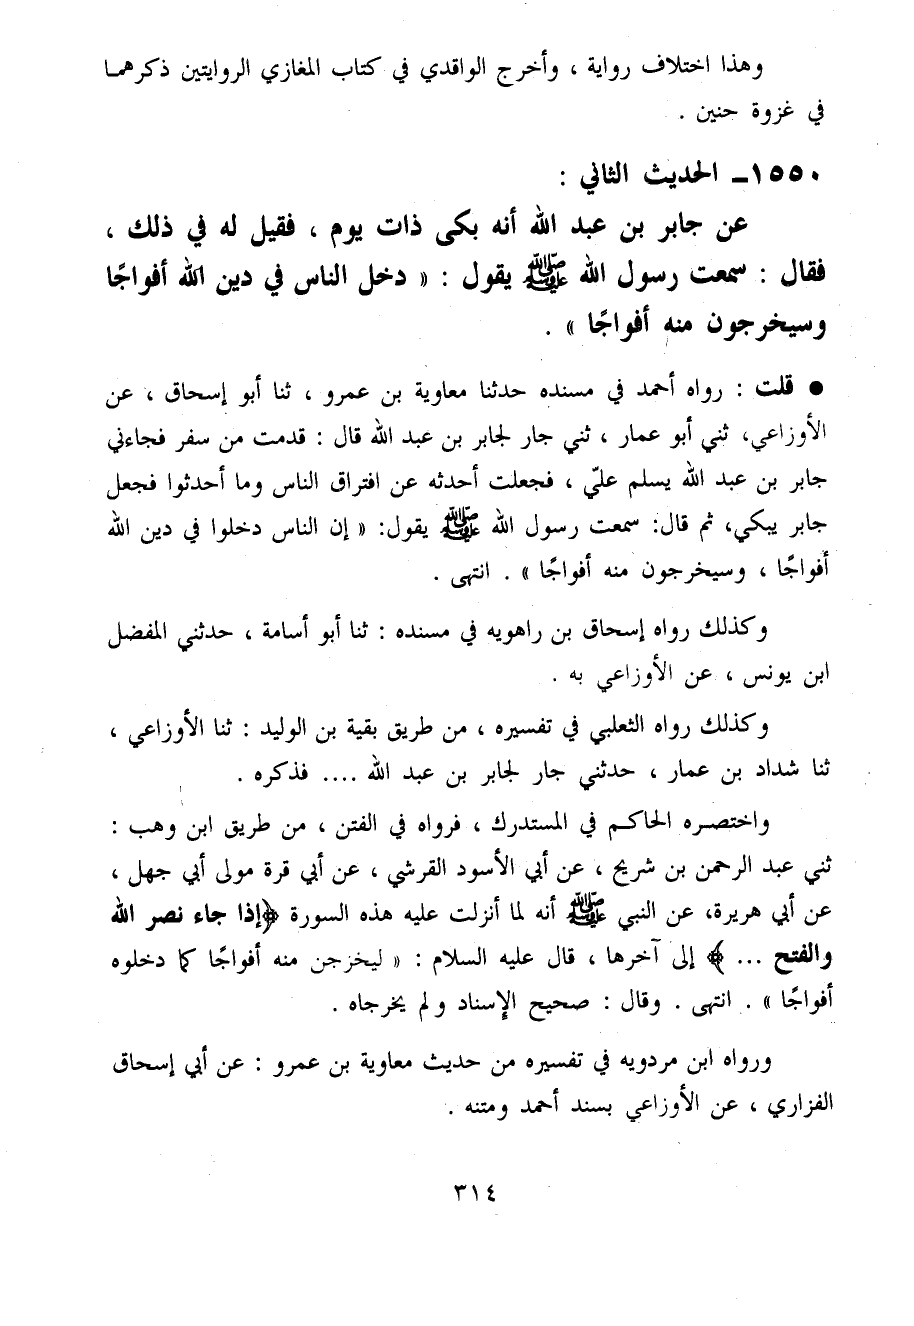 وهذا اختلاف رواية ، وأخرج الواقدي في كتاب المغازي الروايتين ذكرهما
في غزوة حنين .
١٥٥٠ـ الحديث الثاني :
عن جابر بن عبد الله أنه بكى ذات يوم ، فقيل له في ذلك ،
فقال : سمعت رسول الله ﷺ يقول : « دخل الناس في دين الله أفواجًا
وسيخرجون منه أفواجًا » .
● قلت : رواه أحمد في مسنده حدثنا معاوية بن عمرو ، ثنا أبو إسحاق ، عن
الأوزاعي، ثني أبو عمار ، ثني جار لجابر بن عبد الله قال : قدمت من سفر فجاءني
جابر بن عبد الله يسلم عليّ ، فجعلت أحدثه عن افتراق الناس وما أحدثوا فجعل
جابر يبكي، ثم قال: سمعت رسول الله ﷺ يقول: « إن الناس دخلوا في دين الله
أفواجًا ، وسيخرجون منه أفواجًا » . انتهى .
وكذلك رواه إسحاق بن راهويه في مسنده : ثنا أبو أسامة ، حدثني المفضل
ابن يونس ، عن الأوزاعي به .
وكذلك رواه الثعلبي في تفسيره ، من طريق بقية بن الوليد : ثنا الأوزاعي ،
ثنا شداد بن عمار ، حدثني جار لجابر بن عبد الله .... فذكره .
واختصره الحاكم في المستدرك ، فرواه في الفتن ، من طريق ابن وهب :
ثني عبد الرحمن بن شريح ، عن أبي الأسود القرشي ، عن أبي قرة مولى أبي جهل ،
عن أبي هريرة، عن النبي ﷺ أنه لما أنزلت عليه هذه السورة ﴿إذا جاء نصر الله
والفتح ... ﴾ إلى آخرها ، قال عليه السلام : « ليخرجن منه أفواجًا كما دخلوه
أفواجًا » . انتهى . وقال : صحيح الإسناد ولم يخرجاه .
ورواه ابن مردويه في تفسيره من حديث معاوية بن عمرو : عن أبي إسحاق
الفزاري ، عن الأوزاعي بسند أحمد ومتنه .
٣١٤